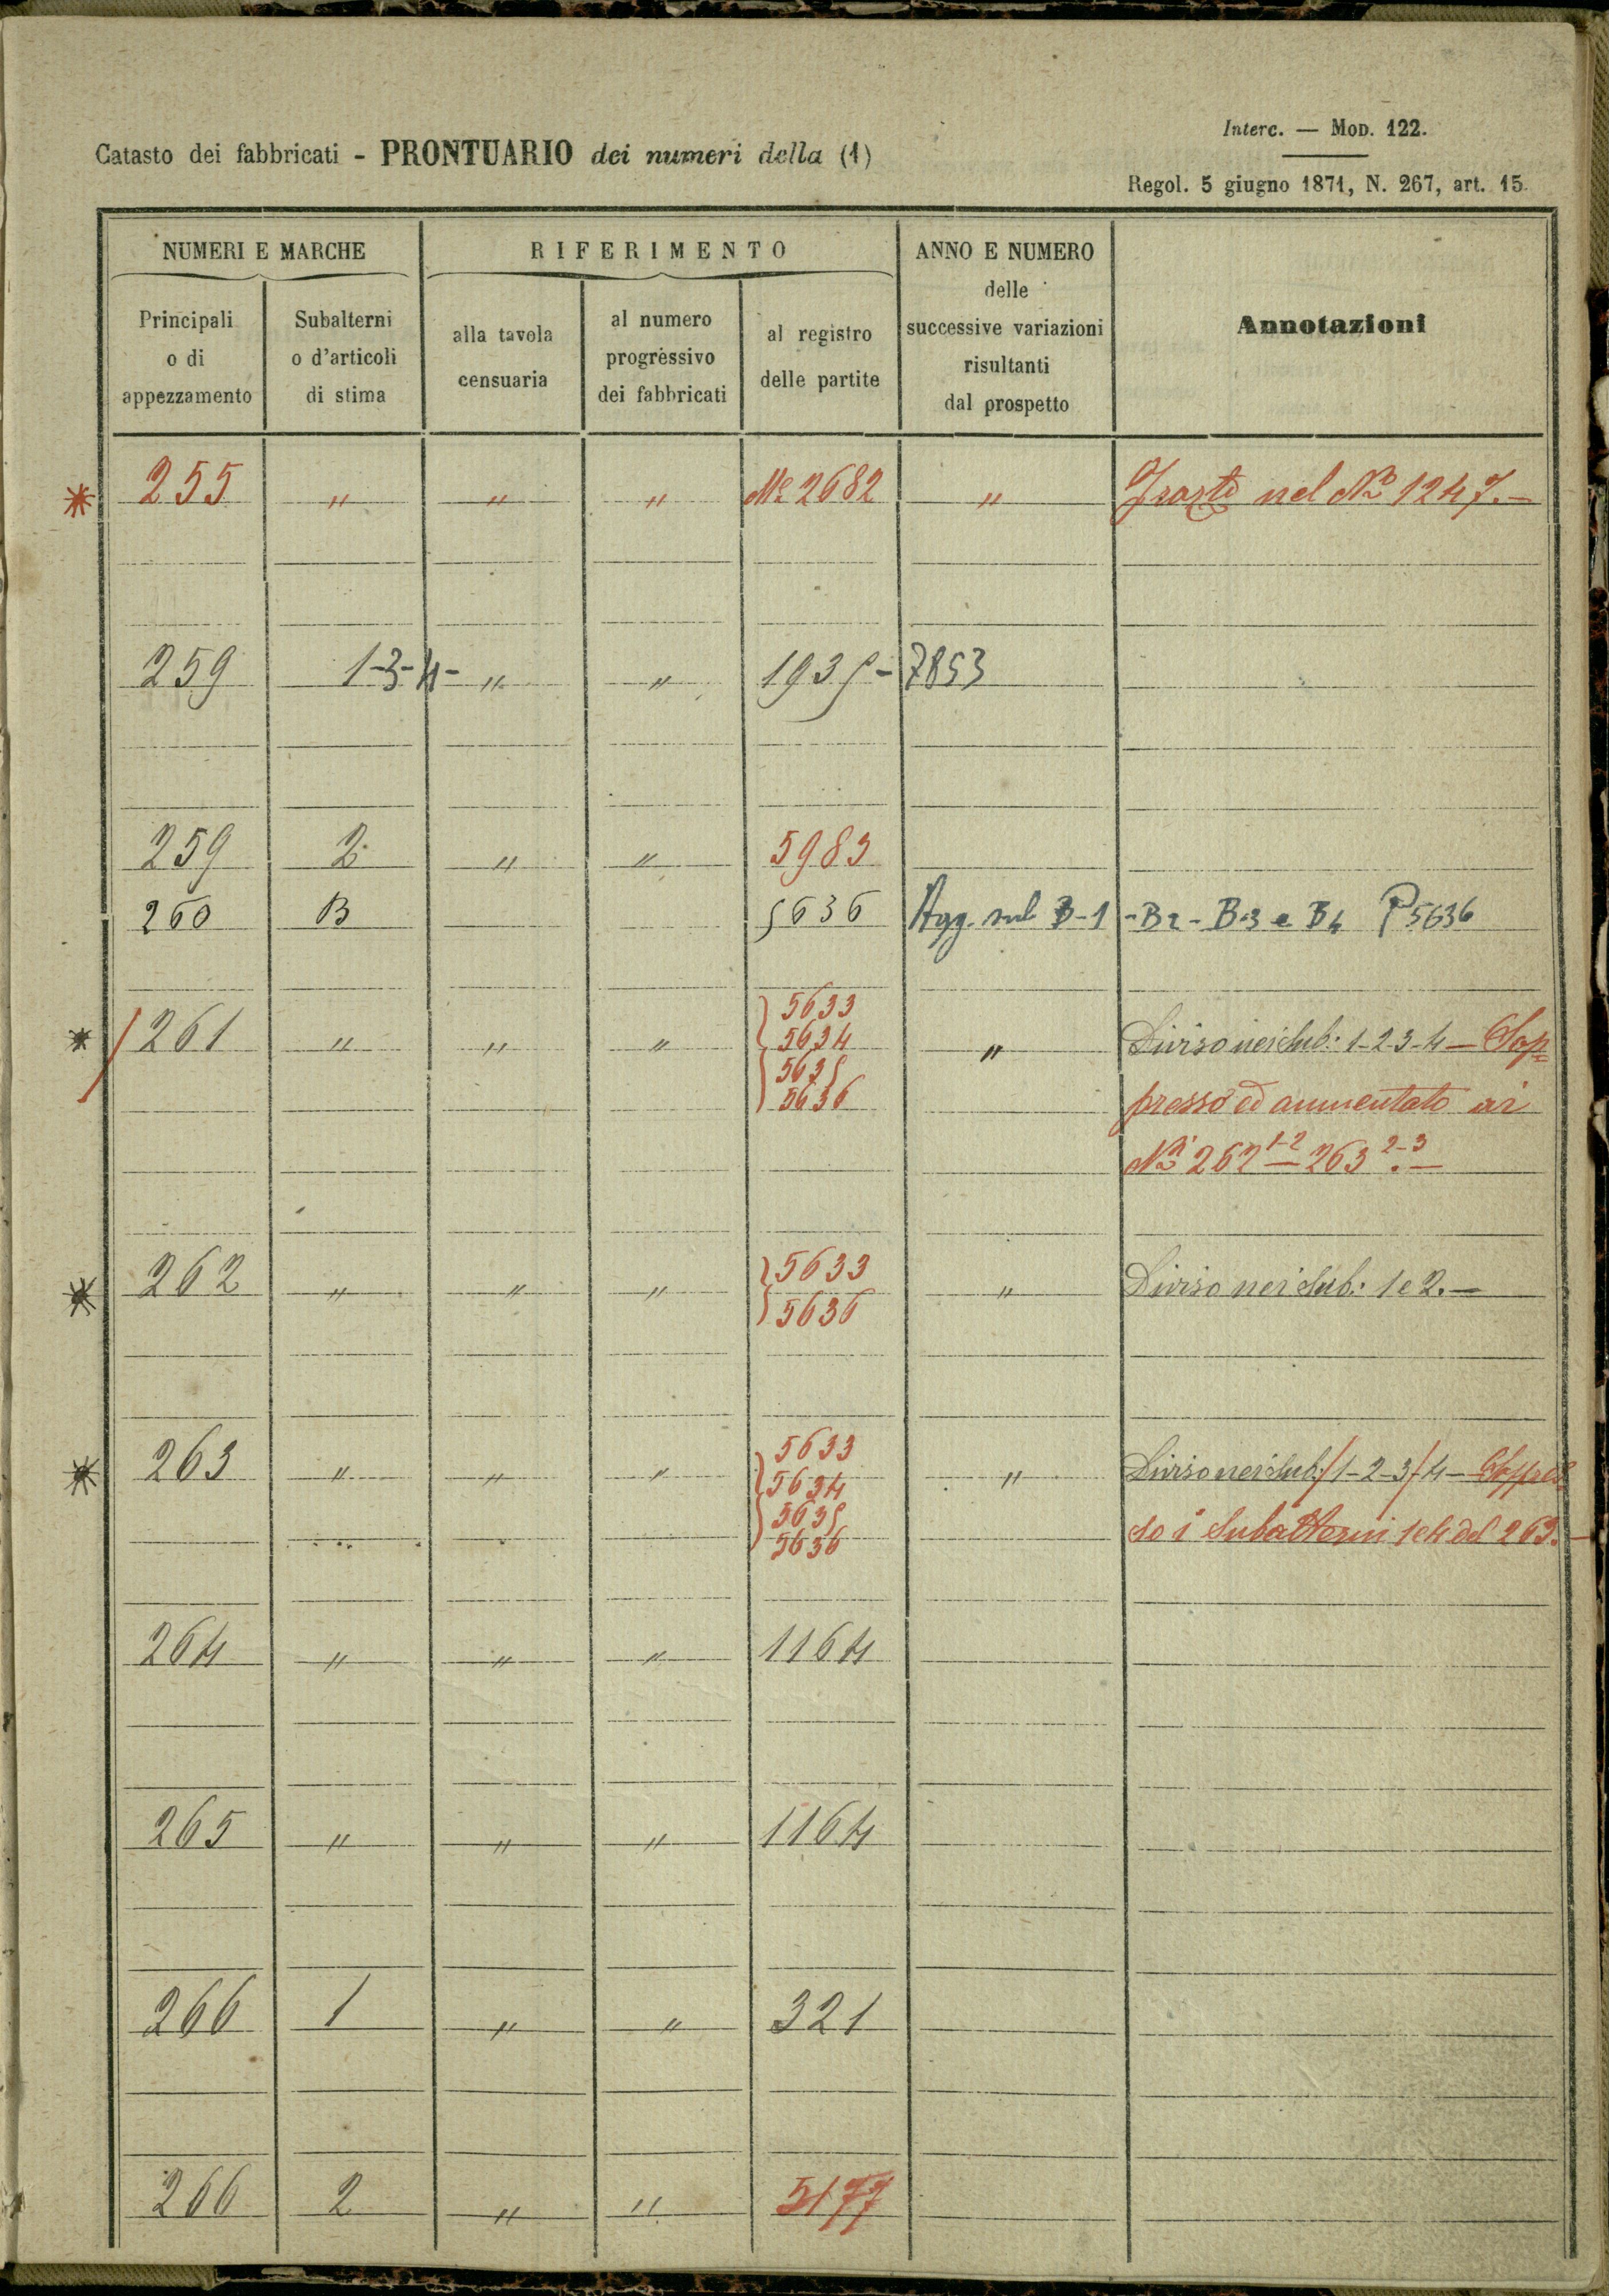 Interc. — Mod. 122.
Catasto dei fabbricati - PRONTUARIO dei numeri della (1)
Regol. 5 giugno 1871, N. 267, art. 15.
NUMERI E MARCHE
RIFERIMENTO
ANNO E NUMERO
delle
successive variazioni
risultanti
dal prospetto
Annotazioni
Principali
o di
appezzamento
Subalterni
o d'articoli
di stima
alla tavola
censuaria
al numero
progressivo
dei fabbricati
al registro
delle partite
* 255 " " " 2682 " nel No 1247.—
259 1-3-4- " " 1935- 7853
259 2 " " 5983
260 B 5636 Agg. sub B-1 -B2 - B-3 e B4 P 5636
5633
* / 261 " " " 5634 " Diviso nei Sub: 1-2-3-4 — Sop=
5635
5636 presso ed aumentato ai
Ni 262 1-2 — 263 2-3.—
* 262 " " " 5633 " Diviso nei Sub: 1 e 2.—
5636
5633
* 263 " " " 5634 " Diviso nei Sub:/1-2-3/4 — Soppres=
5635
5636 so i Subalterni 1 e 4 del 263.—
264 " " " 1164
265 " " " 1164
266 1 " " 321
266 2 " " 5177